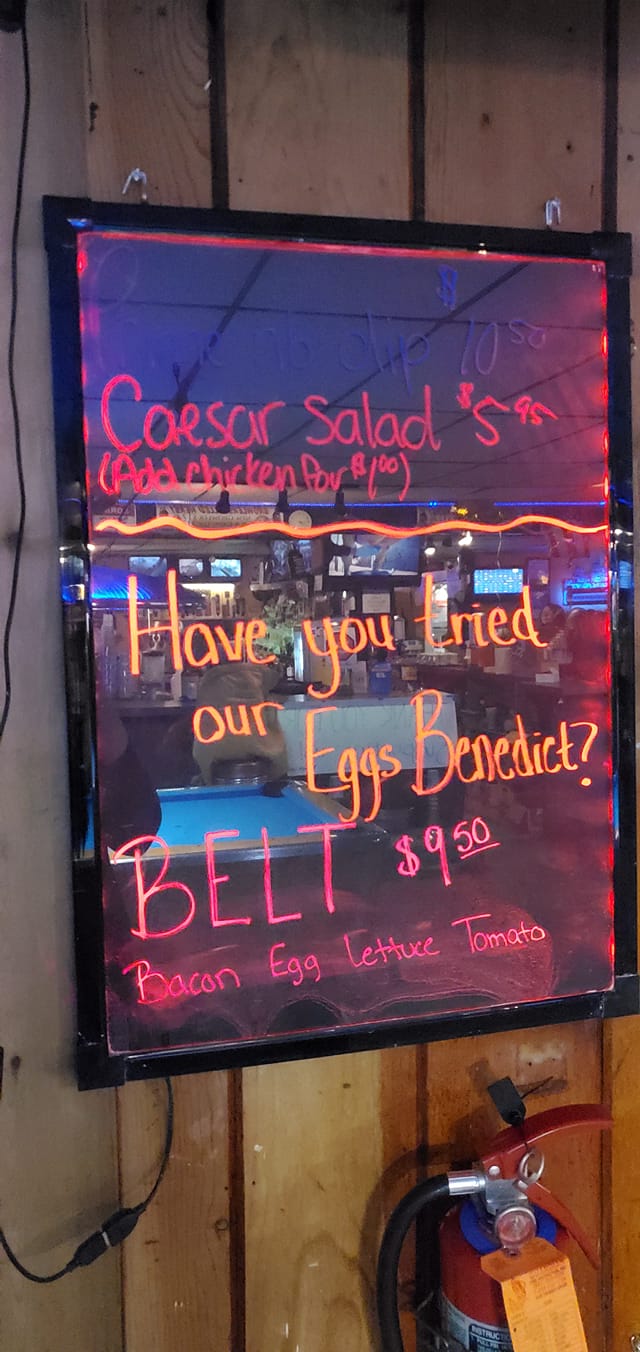 Prime rib dip $10.50
Caesar Salad $5.95
(Add chicken for $1.00)
Have you tried
our Eggs Benedict?
BELT $9.50
Bacon Egg Lettuce Tomato